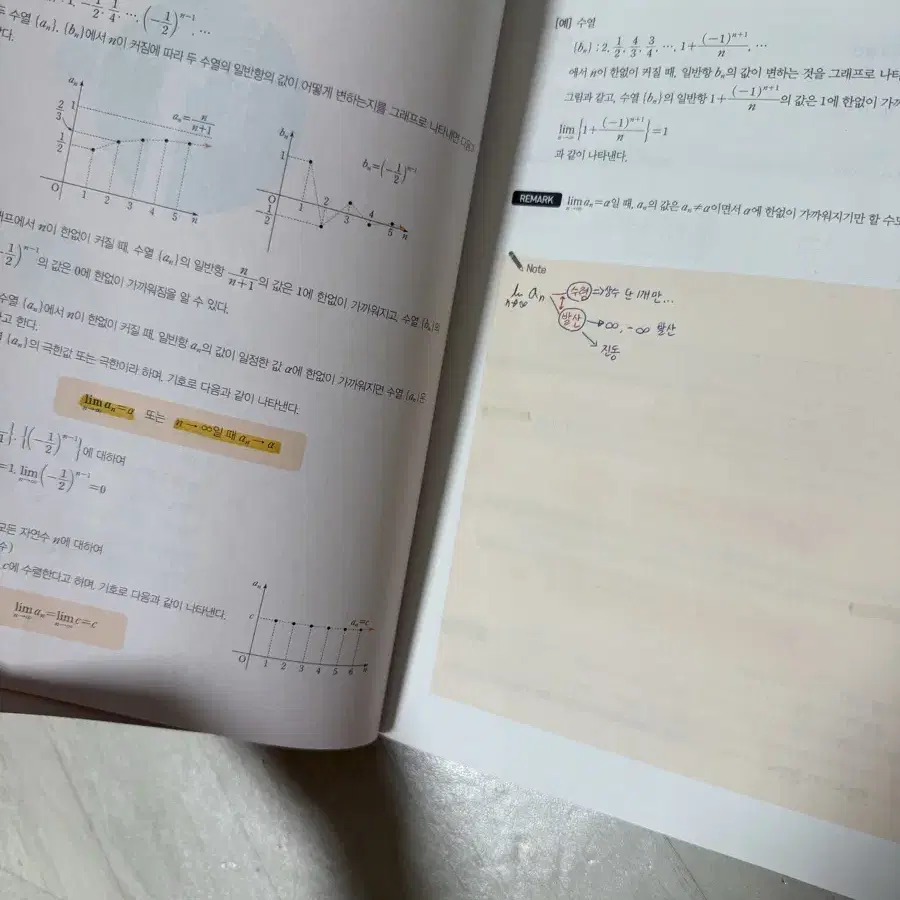 1, -1/2, 1/4, …, (-1/2)^{n-1}, …
수열 {a_n}, {b_n}에서 n이 커짐에 따라 두 수열의 일반항의 값이 어떻게 변하는지를 그래프로 나타내면 다음과
a_n
1
2/3
1/2
a_n = n/(n+1)
O 1 2 3 4 5 n
b_n
1
b_n = (-1/2)^{n-1}
O 1 2 3 4 5 n
1/2
래프에서 n이 한없이 커질 때, 수열 {a_n}의 일반항 n/(n+1)의 값은 1에 한없이 가까워지고, 수열 {b_n}의
(-1/2)^{n-1}의 값은 0에 한없이 가까워짐을 알 수 있다.
수열 {a_n}에서 n이 한없이 커질 때, 일반항 a_n의 값이 일정한 값 α에 한없이 가까워지면 수열 {a_n}은
라고 한다.
{a_n}의 극한값 또는 극한이라 하며, 기호로 다음과 같이 나타낸다.
lim_{n→∞} a_n = α 또는 n → ∞일 때 a_n → α
{(-1/2)^{n-1}}에 대하여
=1, lim_{n→∞} (-1/2)^{n-1} = 0
모든 자연수 n에 대하여
수)
c에 수렴한다고 하며, 기호로 다음과 같이 나타낸다.
lim_{n→∞} a_n = lim_{n→∞} c = c
a_n
c
a_n = c
O 1 2 3 4 5 6 n
[예] 수열
{b_n} : 2, 1/2, 4/3, 3/4, …, 1 + (-1)^{n+1}/n, …
에서 n이 한없이 커질 때, 일반항 b_n의 값이 변하는 것을 그래프로 나타
그림과 같고, 수열 {b_n}의 일반항 1 + (-1)^{n+1}/n의 값은 1에 한없이 가까
lim_{n→∞} {1 + (-1)^{n+1}/n} = 1
과 같이 나타낸다.
REMARK lim_{n→∞} a_n = α일 때, a_n의 값은 a_n ≠ α이면서 α에 한없이 가까워지기만 할 수도
Note
lim_{n→∞} a_n → 수렴 ⇒ 상수 단 1개만…
발산 → ∞, -∞ 발산
→ 진동